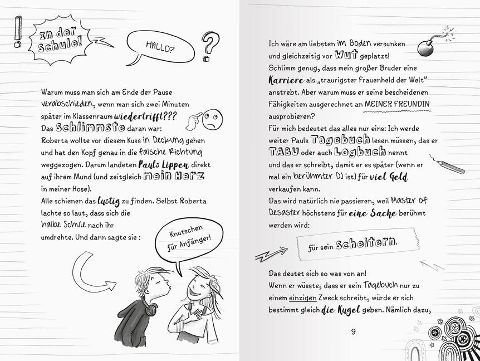 !
An der
Schule!
HALLO?
?
Warum muss man sich am Ende der Pause
verabschieden, wenn man sich zwei Minuten
später im Klassenraum wiedertrifft???
Das Schlimmste daran war:
Roberta wollte vor diesem Kuss in Deckung gehen
und hat den Kopf genau in die falsche Richtung
weggezogen. Darum landeten Pauls Lippen direkt
auf ihrem Mund (und zeitgleich mein Herz
in meiner Hose).
Alle schienen das lustig zu finden. Selbst Roberta
lachte so laut, dass sich die
halbe Schule nach ihr
umdrehte. Und dann sagte sie:
Knutschen
für Anfänger!
Ich wäre am liebsten im Boden versunken
und gleichzeitig vor Wut geplatzt!
Schlimm genug, dass mein großer Bruder eine
Karriere als „traurigster Frauenheld der Welt"
anstrebt. Aber warum muss er seine bescheidenen
Fähigkeiten ausgerechnet an MEINER FREUNDIN
ausprobieren?
Für mich bedeutet das alles nur eine: Ich werde
weiter Pauls Tagebuch lesen müssen, das er
TABU oder auch Logbuch nennt
und das er schreibt, damit er es später (wenn er
mal ein berühmter DJ ist) für viel Geld
verkaufen kann.
Das wird natürlich nie passieren, weil Master of
Desaster höchstens für eine Sache berühmt
werden wird:
für sein Scheitern.
Das deutet sich so was von an!
Wenn er wüsste, dass er sein Tagebuch nur zu
einem einzigen Zweck schreibt, würde er sich
bestimmt gleich die Kugel geben. Nämlich dazu,
9